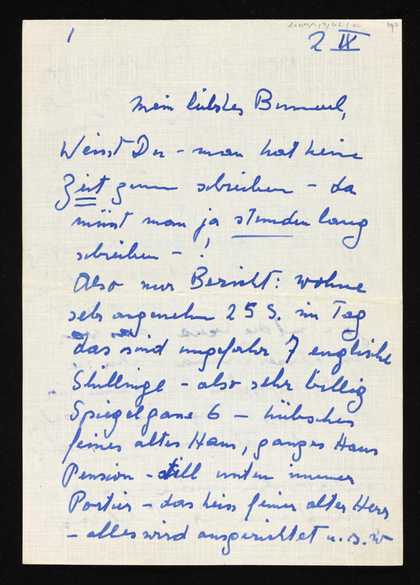 1
2 IX
Mein liebstes Bummerl,
Weisst Du – man hat keine
Zeit zum schreiben – da
müsst man ja stundenlang
schreiben – !
Also nur Bericht: wohne
sehr angenehm 25 S. im Tag
das sind ungefähr 7 englische
Shillinge – also sehr billig
Spiegelgasse 6 – hübsches
feines altes Haus, ganzes Haus
Pension – still unten immer
Portier – das heisst feiner alter Herr
– alles wird ausgerichtet u.s.w